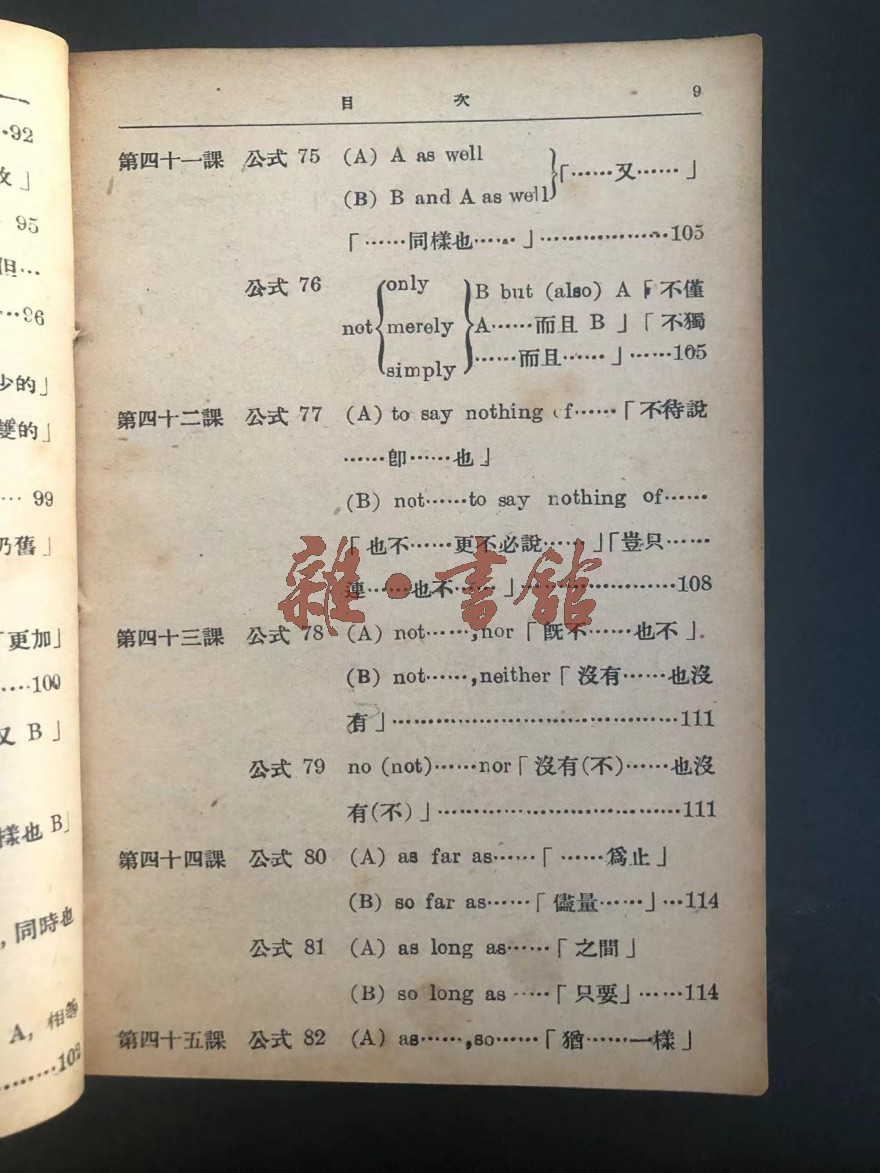 —
·92
攻」
95
但…
··96
少的」
雙的」
… 99
乃舊」
「更加」
….100
又 B」
樣也 B」
, 同時也
A, 相等
………102
目 次 9
第四十一課 公式 75 (A) A as well
(B) B and A as well }「……又……」
「……同樣也……」………………105
公式 76 not { only merely simply } B but (also) A「不僅
A……而且 B」「不獨
……而且……」……105
第四十二課 公式 77 (A) to say nothing of……「不待說
……卽……也」
(B) not……to say nothing of……
「也不……更不必說……」「豈只……
連……也不……」…………………108
第四十三課 公式 78 (A) not……,nor「旣不……也不」.
(B) not……,neither「沒有……也沒
有」…………………………………111
公式 79 no (not)……nor「沒有(不)……也沒
有(不)」……………………………111
第四十四課 公式 80 (A) as far as……「……爲止」
(B) so far as……「儘量……」…114
公式 81 (A) as long as……「之間」
(B) so long as ……「只要」……114
第四十五課 公式 82 (A) as……,so……「猶……一樣」
雜·書館